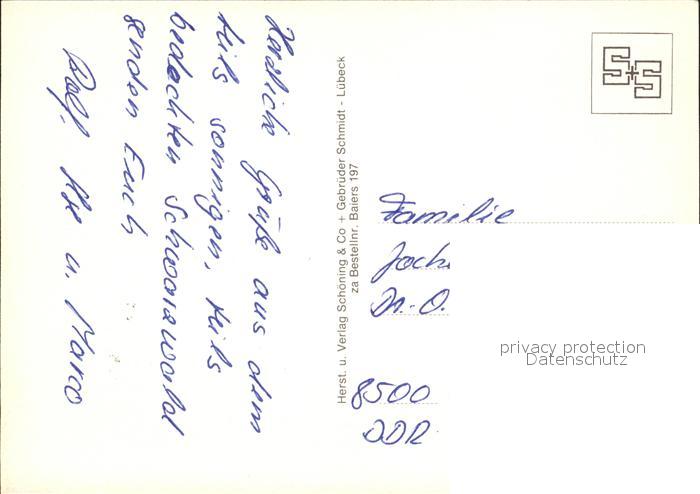 Herzliche Grüße aus dem
teils sonnigen, teils
bedeckten Schwarzwald
senden Euch
Rolf, u. Marco
Herst. u. Verlag Schöning & Co + Gebrüder Schmidt - Lübeck
za Bestellnr. Baiers 197
S+S
Familie
Joch
Dr.-O.
8500
DDR
privacy protection
Datenschutz